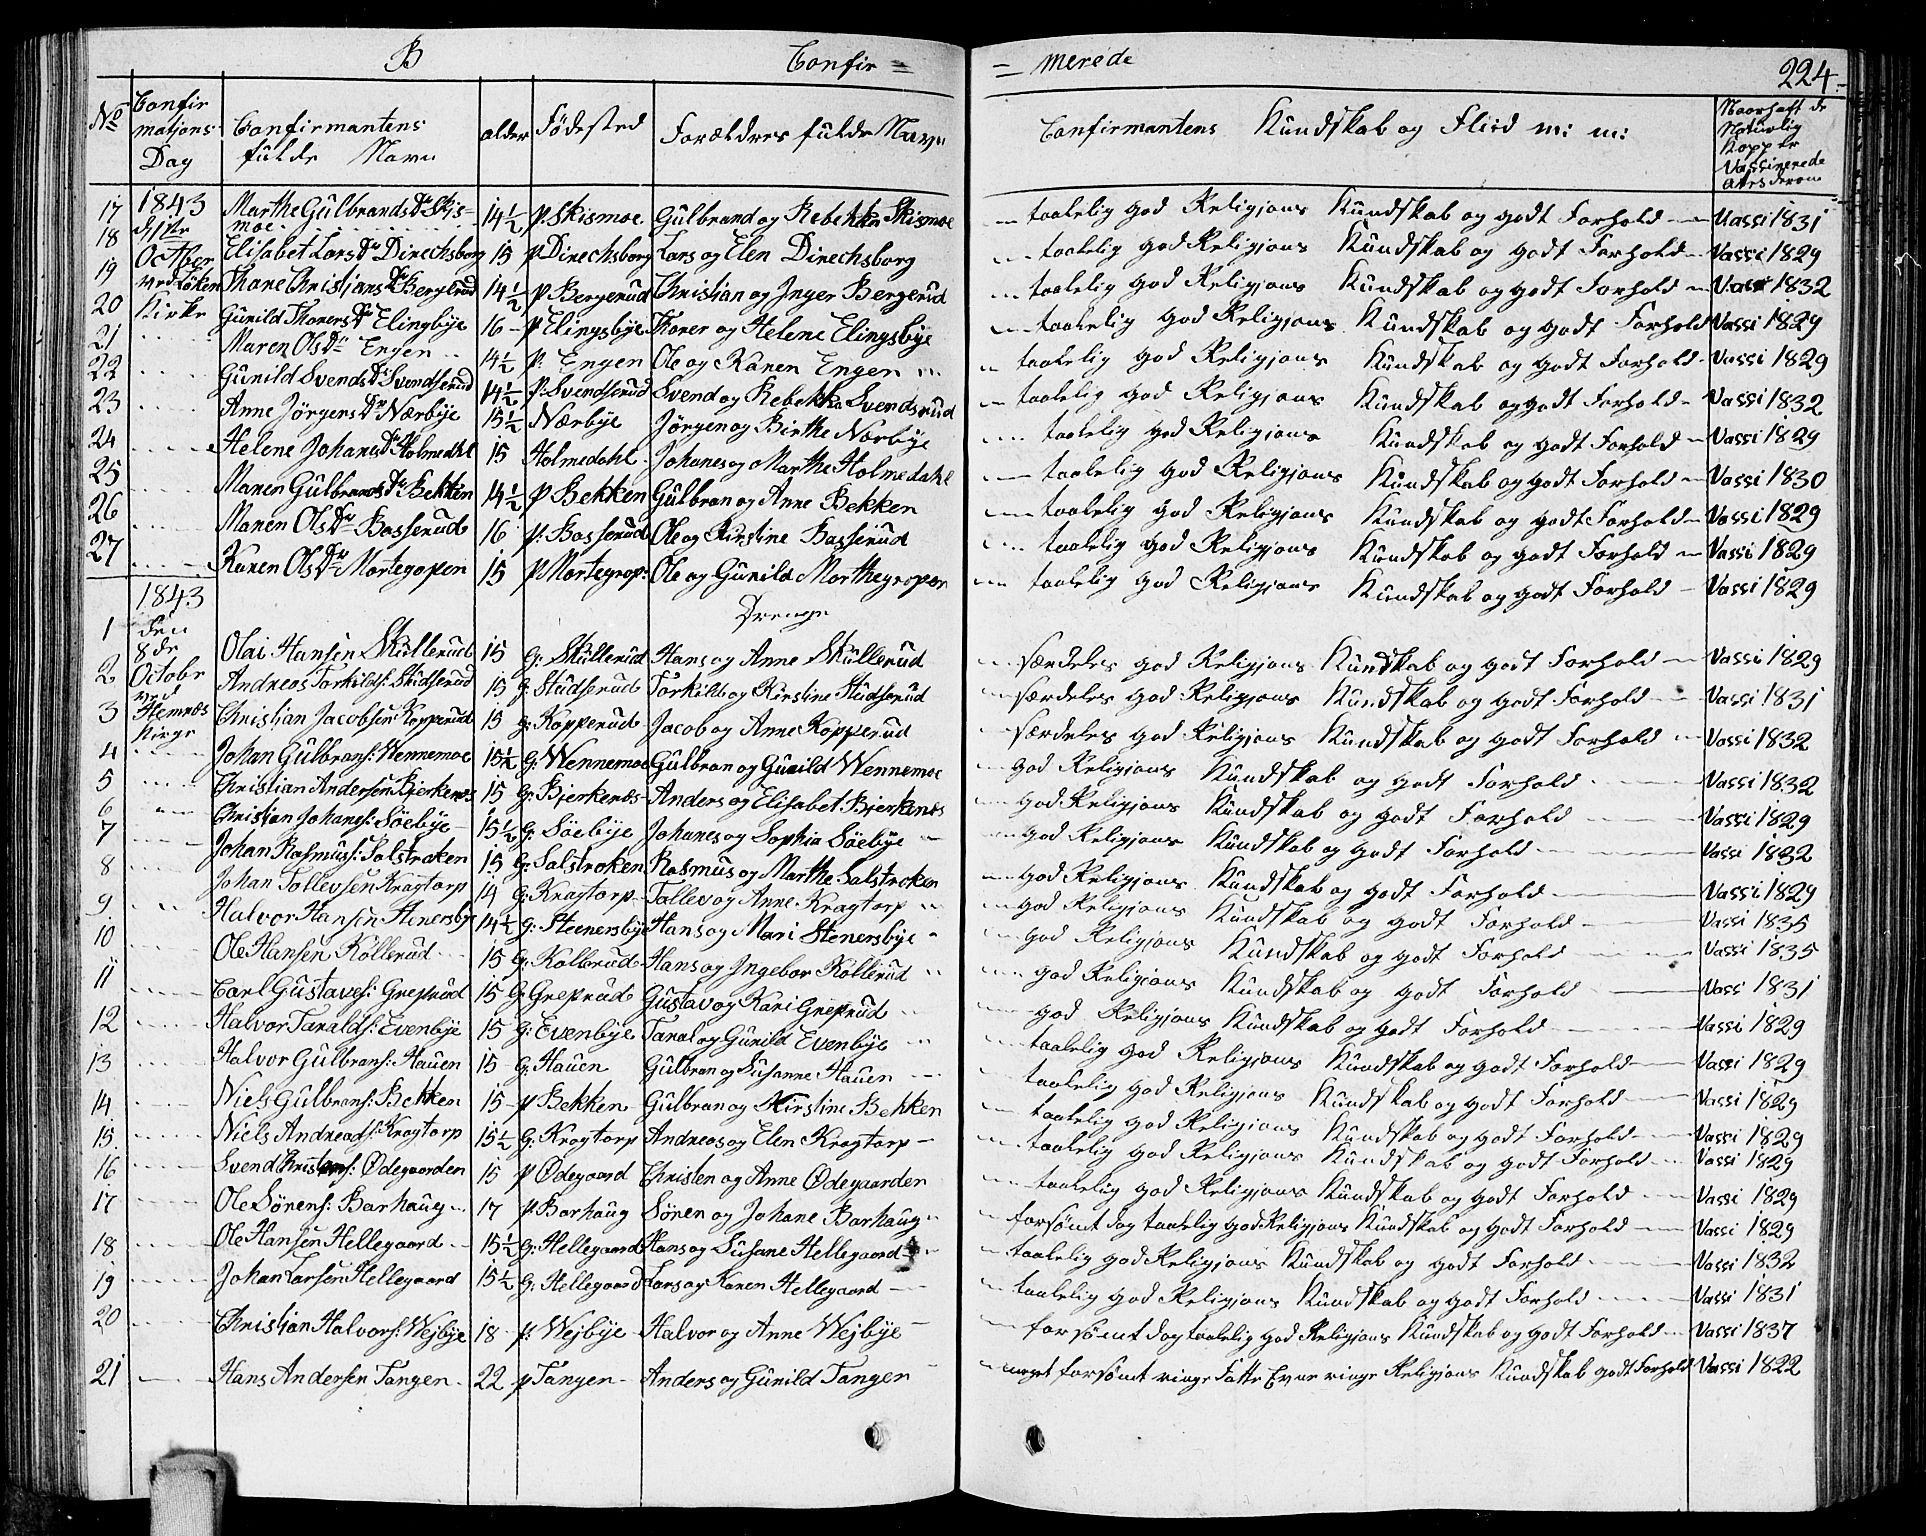 B Confir = = merede 224.
No Confirmatjons Dag Confirmantens fulde Navn alder Födested Forældres fulde Navn Confirmantens Kundskab og Fliid m: m:
17 1843 Marthe Gulbrandsdr Skismoe 14½ p. Skismoe Gulbrand og Rebekka Skismoe taalelig god Religjons Kundskab og godt Forhold Vassi 1831
18 Octber Elisabet Larsdr Direchsborg 15 p Direchsborg Lars og Elen Direchsborg taalelig god Religjons Kundskab og godt Forhold Vassi 1829
19 ved Löken Thare Christjansdr Bergerud 14½ p Bergerud Christian og Inger Bergerud taalelig god Religjons Kundskab og godt Forhold Vassi 1832
20 Kirke Gunild Thoresdr Elingbye 16 p Elingsbye Thorer og Helene Elingsbye taalelig god Religjons Kundskab og godt Forhold Vassi 1829
21 Maren Olsdr Engen 14½ p. Engen Ole og Karen Engen taalelig god Religjons Kundskab og godt Forhold Vassi 1829
22 Gunild Svendsdr Svendserud 14½ p: Svendserud Svend og Rebekka Svendsrud taalelig god Religjons Kundskab og godt Forhold Vassi 1832
23 Anne Jörgensdr Nærbye 15½ Nærbye Jörgen og Birthe Nærbye taalelig god Religjons Kundskab og godt Forhold Vassi 1829
24 Helene Johansdr Holmedahl 15 Holmedahl Johanes og Marthe Holmedahl taalelig god Religjons Kundskab og godt Forhold Vassi 1830
25 Maren Gulbransdr Bekken 14½ p Bekken Gulbran og Anne Bekken taalelig god Religjons Kundskab og godt Forhold Vassi 1829
26 Maren Olsdr Basserud 16 p. Basserud Ole og Kirstine Basserud taalelig god Religjons Kundskab og godt Forhold Vassi 1829
27 Karen Olsdr Mortegopen 15 p Mortegrop: Ole og Gunild Morthegropen taalelig god Religjons Kundskab og godt Forhold Vassi 1829
1843 Drenge
1 den 8de Olai Hansen Skullerud 15 G: Skullerud Hans og Anne Skullerud særdeles god Religjons Kundskab og godt Forhold Vassi 1829
2 Octobr Andreas Torkilds: Studserud 15 G: Studserud Torkild og Kirstine Studserud særdeles god Religjons Kundskab og godt Forhold Vassi 1831
3 ved Hemnes Kirge Christian Jacobsen Kopperud 15 G: Kopperud Jacob og Anne Kopperud særdeles god Religjons Kundskab og godt Forhold Vassi 1832
4 Johan Gulbrans: Wennemoe 15½ G: Wennemoe Gulbran og Gunild Wennemoe god Religjons Kundskab og godt Forhold Vassi 1832
5 Christian Andersen Bjerkenes 15 G: Bjerkenes Anders og Elisabet Bjerkenes god Religjons Kundskab og godt Forhold Vassi 1829
6 Christian Johanes: Söebye 15½ G: Söebye Johanes og Sophia Söebye god Religjons Kundskab og godt Forhold Vassi 1832
7 Johan Rasmus: Salstroken 15 G: Salstroken Rasmus og Marthe Salstroken god Religjons Kundskab og godt Forhold Vassi 1829
8 Johan Tollevsen Kragtorp 14 G: Kragtorp Tollev og Anne Kragtorp god Religjons Kundskab og godt Forhold Vassi 1835
9 Halvor Hansen Stenersbye 14½ G: Steenersbye Hans og Mari Stenersbye god Religjons Kundskab og godt Forhold Vassi 1835
10 Ole Hansen Kollerud 15 G: Kollerud Hans og Ingebor Kollerud god Religjons Kundskab og godt Forhold Vassi 1831
11 Carl Gustaves: Greprud 15 G: Greprud Gustav og Kari Greprud god Religjons Kundskab og godt Forhold Vassi 1829
12 Halvor Taralds: Evenbye 15 G: Evenbye Taral og Gunild Evenbye taalelig god Religjons Kundskab og godt Forhold Vassi 1829
13 Halvor Gulbrans: Hauen 15 G: Hauen Gulbran og Susanne Hauen taalelig god Religjons Kundskab og godt Forhold Vassi 1829
14 Niels Gulbrans: Bekken 15 p Bekken Gulbran og Kirstine Bekken taalelig god Religjons Kundskab og godt Forhold Vassi 1829
15 Niels Andreads: Kragtorp 15½ G: Kragtorp Andreas og Elen Kragtorp taalelig god Religjons Kundskab og godt Forhold Vassi 1829
16 Svend Christens: Ödegaarden 15 p Ödegaard Christen og Anne Ödegaarden taalelig god Religjons Kundskab og godt Forhold Vassi 1829
17 Ole Sörens: Barhaug 17 p Barhaug Sören og Johane Barhaug forsömt dog taalelig god Religjons Kundskab og godt Forhold Vassi 1829
18 Ole Hansen Hellegaard 15½ G: Hellegaard Hans og Susane Hellegaard taalelig god Religjons Kundskab og godt Forhold Vassi 1832
19 Johan Larsen Hellegaard 15½ G: Hellegaard Lars og Karen Hellegaard taalelig god Religjons Kundskab og godt Forhold Vassi 1831
20 Christjan Halvors: Wejbye 18 p: Wejbye Halvor og Anne Wejbye forsömt dog taalelig god Religjons Kundskab og godt Forhold Vassi 1837
21 Hans Andersen Tangen 22 p Tangen Anders og Gunild Tangen meget forsömt ringe Fatte Evne ringe Religjons Kundskab godt Forhold Vassi 1822